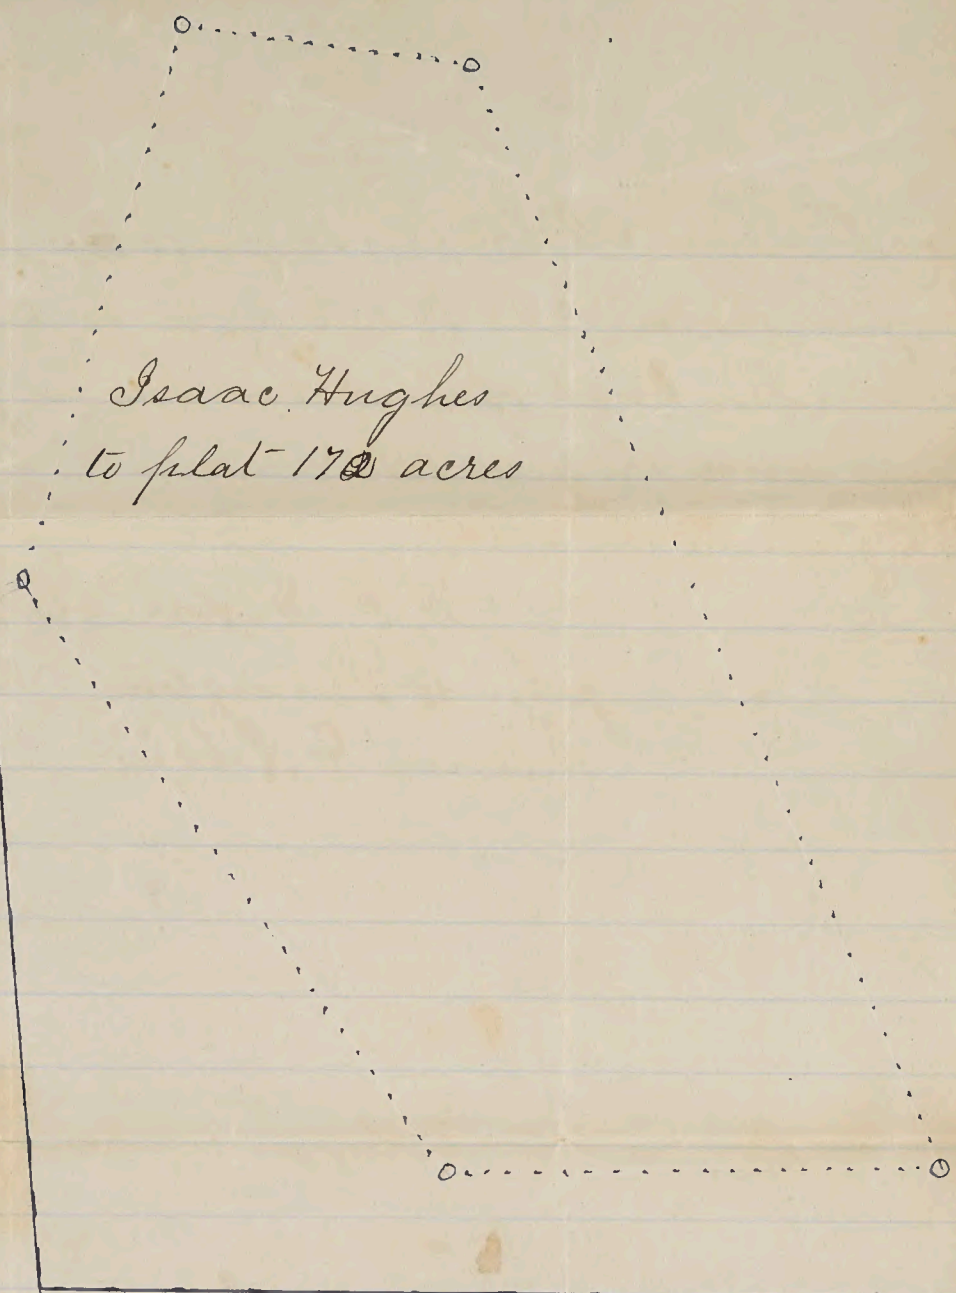 Isaac Hughes
to plat 172 acres